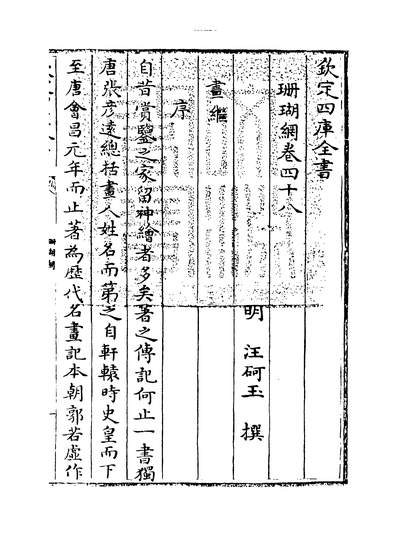 欽定四庫全書
珊瑚網卷四十八
明 汪砢玉 撰
畫繼
序
自昔賞鑒之家留神繪者多矣著之傳記何止一書獨
唐張彥遠總括畫人姓名而第之自軒轅時史皇而下
至唐會昌元年而止著為歷代名畫記本朝郭若虛作
珊瑚網